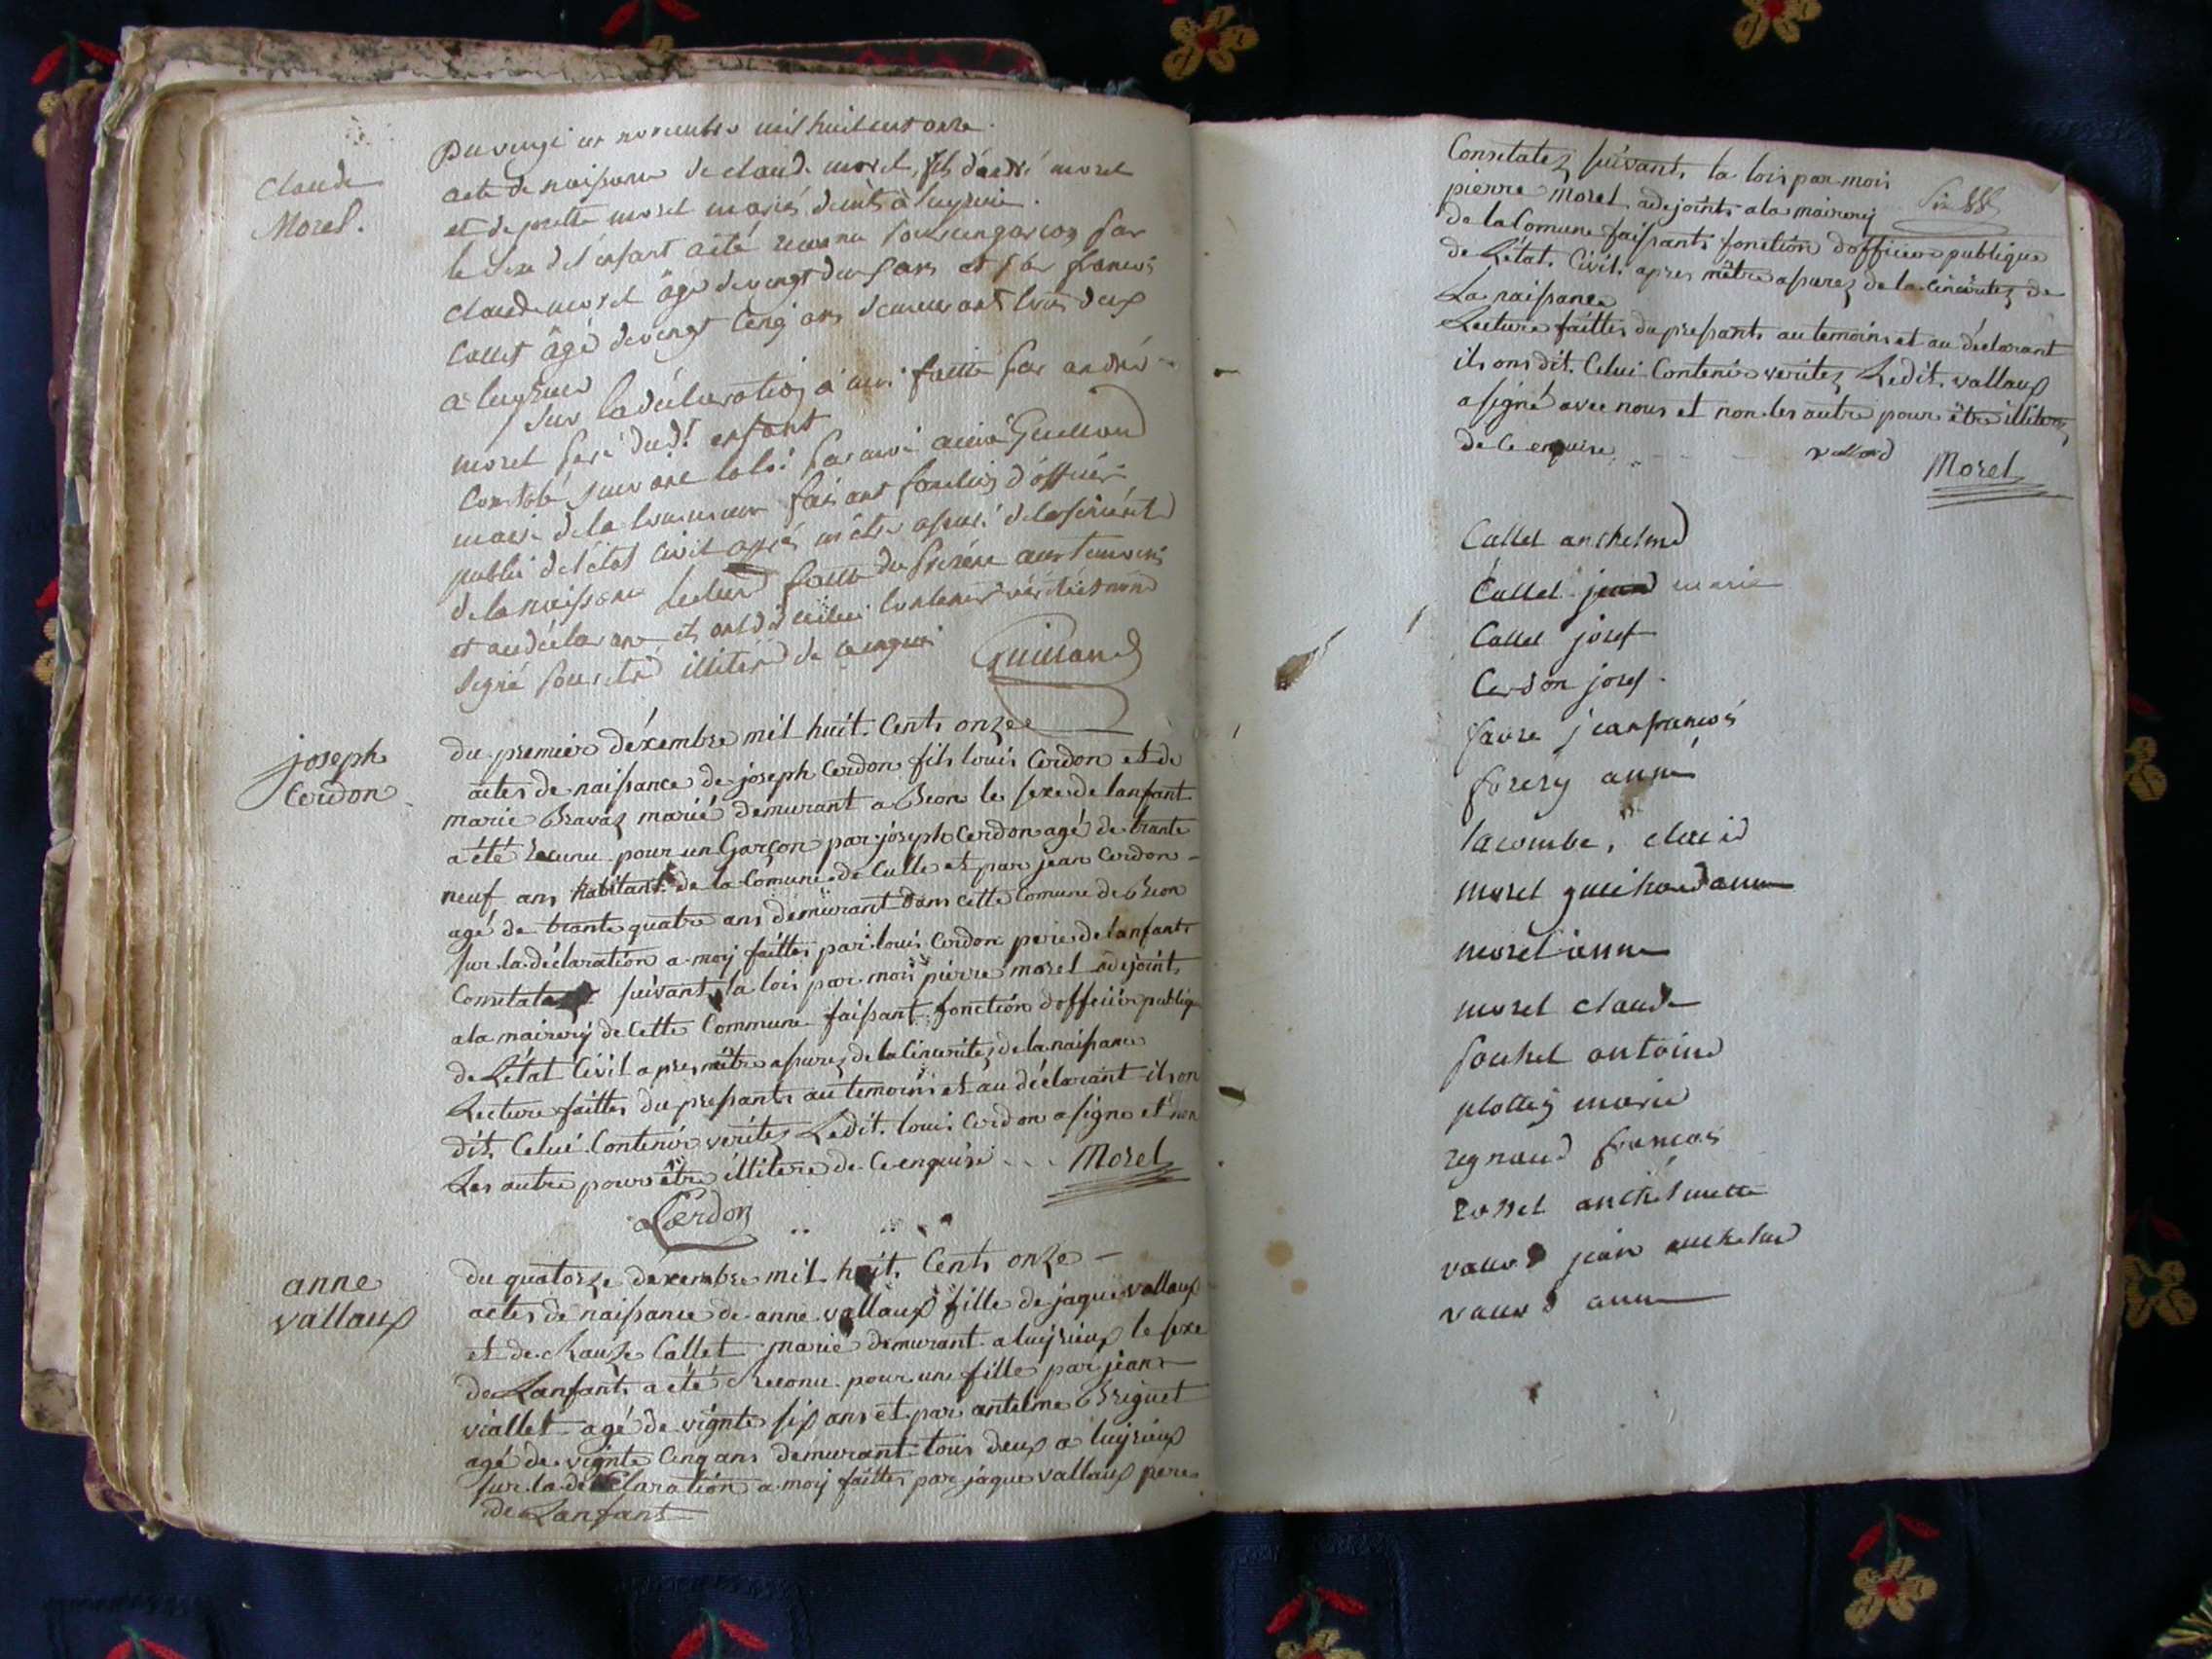 Claude
Morel.
Du vingt un novembre mil huit cent onze
acte de naissance de claude morel, fils d'andré morel
et de morel mariés à luyrieu.
le sexe de l'enfant a été reconu garçon par
claude morel âgé de vingt deux ans et par francois
Callet âgé de vingt cinq ans demeurant tous deux
a luyrieu
sur la déclaration à moi faitte par andré
morel père dudt enfant
Constaté suivant la loi par moi aimé Guilland
maire de la commune faisant fonction d'officier
public de l'état civil après m'être assuré de la sincérité
de la naissance Lecture faitte du présent aux temoins
et au déclarant ils ont dit celui contenir vérité et n'ont
signé pour être illitéré de ce enquis
Guilland
joseph
Cerdon
du premier déxembre mil huit Cents onze
actes de naissance de joseph Cerdon fils louis Cerdon et de
marie Bravaz marié demurant a Beon le sexe de lanfant
a été recunu pour un Garçon par joseph Cerdon agé de trante
neuf ans habitant de la Comune de Culle et par jean Cerdon
agé de trante quatre ans demurant dans cette Comune de Beon
sur la déclaration a moy faittes par louis Cerdon pere de lanfants
Constatez suivant la lois par mois pierre morel adejoints
a la mairerÿ de Cette Commune faissant fonction dofficier publique
de Létat Civil apres mêtre assurez de la Cincéritez de la naissance
Lecture faittes du pressants au temoins et au déclarant ils on
dit Celui Contenir veritez Ledit louis Cerdon a signé et non
Les autre pour être illitere de Ce enquire Morel
Cerdon
anne
vallaux
du quatorze déxembre mil huit Cents onze
actes de naissance de anne vallaux fille de jaque vallaux
et de Rauze Callet marié demurant a luyrieux le sexe
de Lanfants a été Reconu pour une fille par jean
viallet agé de vignte six ans et par antelme Briguet
agé de vignte Cinq ans demurant tous deux a luyrieux
sur la déClaration a moy faittes par jaque vallaux pere
de Lanfant
Constatez suivant la lois par mois
pierre morel adejoints a la mairerÿ
de la Comune faissants fonction dofficier publique
de Létat Civil apres mêtre assurez de la Cincéritez de
La naissance
Lecture faittes du pressants au temoins et au déclarant
ils ons dit Celui Contenir veritez Ledit vallaux
a signé avec nous et non les autre pour être illitere
de Ce enquire vallod Morel
Callet anthelme
Callet jean marie
Callet josef
Cerdon josef
favre jeanfrancois
anne
lacombe, claude
morel guilland anne
morel anne
morel claude
antoine
marie
regnaud francois
rosset anthelmette
jean anthelme
anne